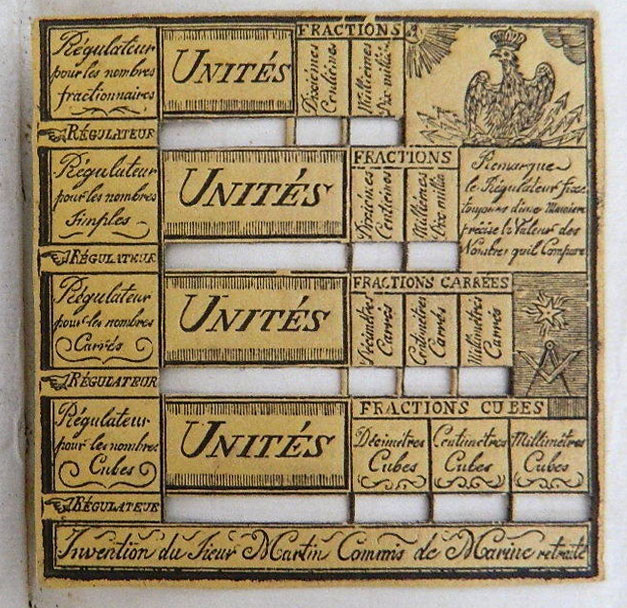 Régulateur
pour les nombres
fractionnaires
UNITÉS
FRACTIONS
Dixiémes
Centiémes
Millièmes
Dix millie
RÉGULATEUR
Régulateur
pour les nombres
Simples
UNITÉS
FRACTIONS
Dixiémes
Centiémes
Millièmes
Dix millie
Remarque
le Régulateur fixe
toujours d'une Maniere
précise la Valeur des
Nombres qu'il Compare
RÉGULATEUR
Régulateur
pour les nombres
Carrés
UNITÉS
FRACTIONS CARRÉES
Décimetres
Carrés
Centimetres
Carrés
Millimetres
Carrés
RÉGULATEUR
Régulateur
pour les nombres
Cubes
UNITÉS
FRACTIONS CUBES
Décimetres
Cubes
Centimetres
Cubes
Millimetres
Cubes
RÉGULATEUR
Invention du Sieur Martin Commis de Marine retraité